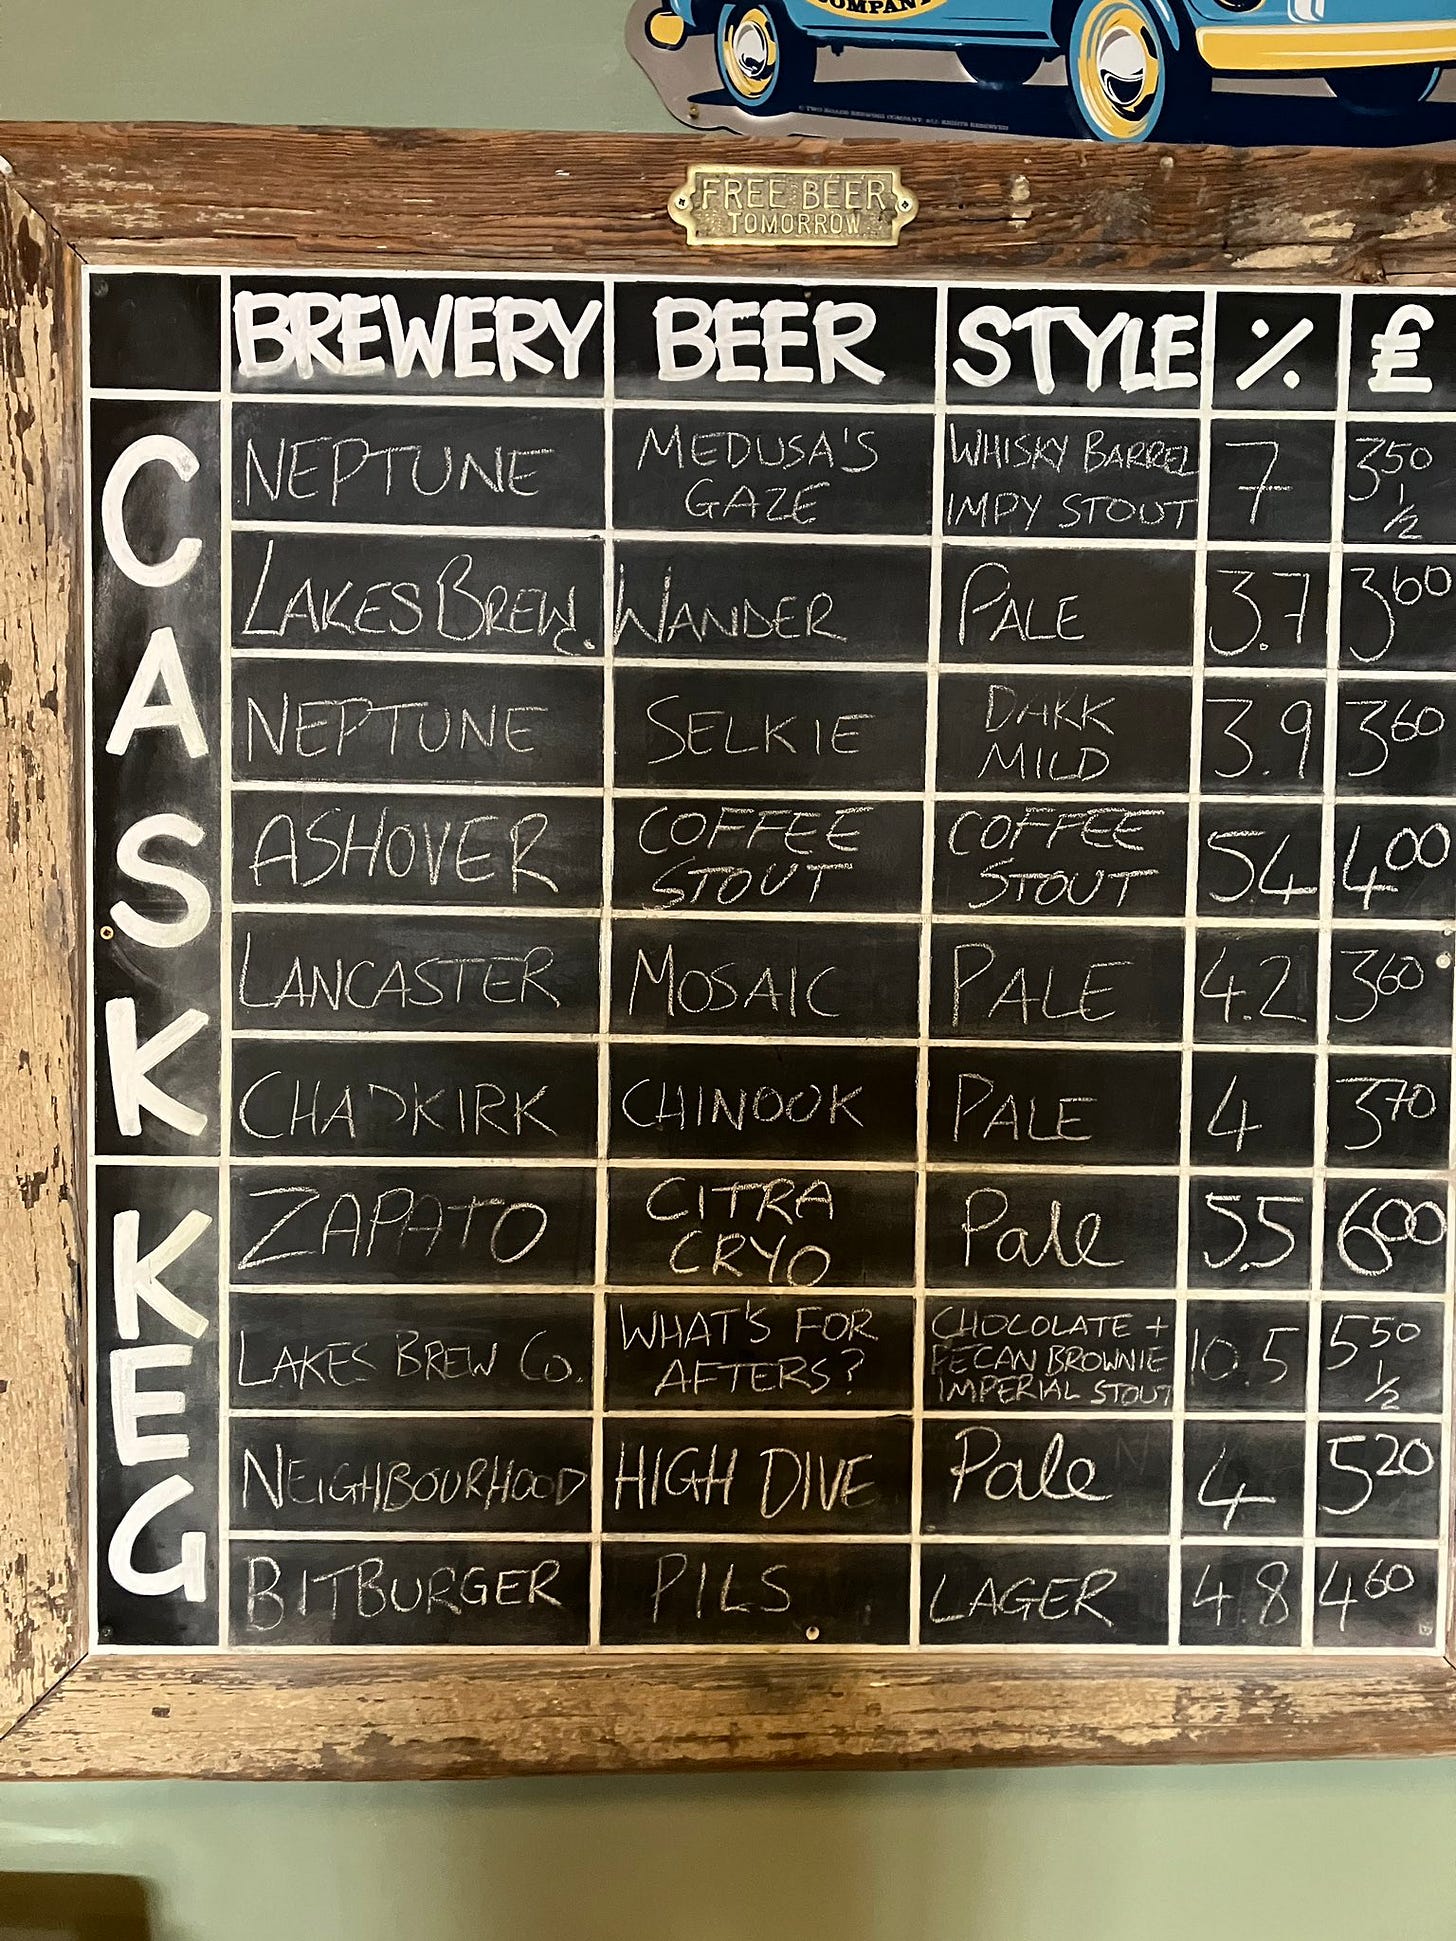 COMPANY
© TWO ROADS BREWING COMPANY. ALL RIGHTS RESERVED
FREE BEER
TOMORROW
BREWERY BEER STYLE % £
CASK
NEPTUNE MEDUSA'S GAZE WHISKY BARREL IMPY STOUT 7 350 1/2
LAKES BREW C. WANDER PALE 3.7 360
NEPTUNE SELKIE DARK MILD 3.9 360
ASHOVER COFFEE STOUT COFFEE STOUT 54 400
LANCASTER MOSAIC PALE 4.2 360
CHADKIRK CHINOOK PALE 4 370
KEG
ZAPATO CITRA CRYO Pale 5.5 600
LAKES BREW Co. WHAT'S FOR AFTERS? CHOCOLATE + PECAN BROWNIE IMPERIAL STOUT 10.5 550 1/2
NEIGHBOURHOOD HIGH DIVE Pale 4 520
BITBURGER PILS LAGER 4.8 460